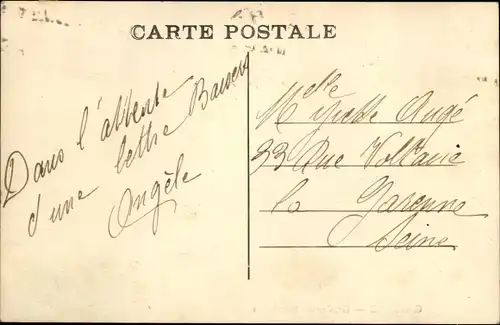 CARTE POSTALE
Dans l'attente
d'une lettre Baisers
Angèle
Melle Yvette Augé
33 Rue Voltaire
la Garenne
Seine